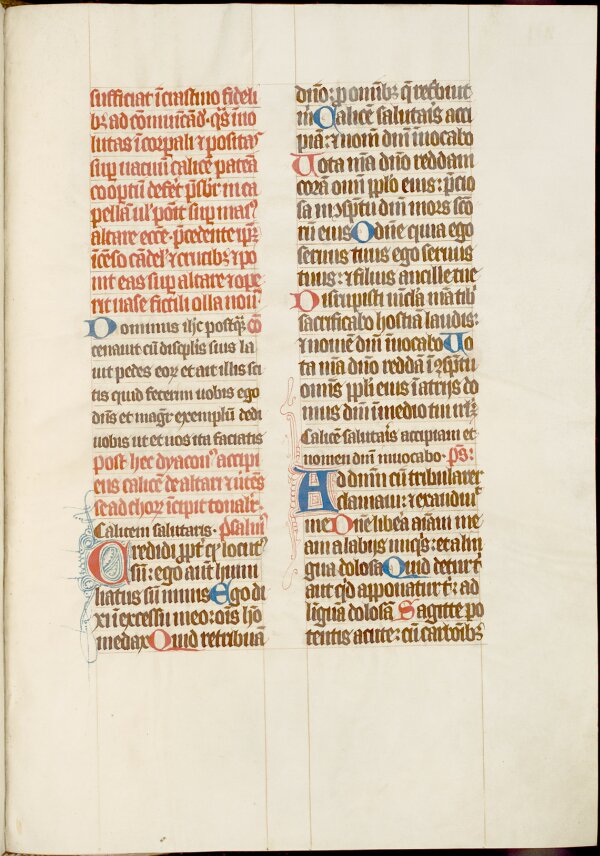 sufficiat ī crastino fideli
bꝫ ad cōmunicād̄. q̄s inuo
lutas ī corpali ⁊ positas
suꝑ uacuū calicē patēa
cooptū defēt p̄sbr̄ in ca
pellā ul' pōit suꝑ maꝰ
altare ecc̄e. p̄cedente ip̄ꝫ
īcēso cādel' ⁊ crucibꝫ ⁊ po
nit eas suꝑ altare ⁊ ope
rit uase fictili olla nou
Dominus ih̄c postqꝫ
cenauit cū discipl̄is suis la
uit pedes eoꝝ et ait illis sci
tis quid fecerim uobis ego
dn̄s et magr̄ exemplū dedi
uobis ut et uos ita faciatis
Post hec dyaconꝰ accipi
ens calicē de altari ⁊ uertēs
se ad choꝝ īcipit tonale.
Calicem salutaris. psalm̄ꝰ
Credidi ꝓpt̄ qꝫ locutꝰ
sū: ego aut̄ humi
liatus sū nimis Ego di
xi ī excessu meo: ois hō
mendax Quid retribuā
dn̄o: ꝓ omībꝫ q̄ ret'buit
m̄ Calicē salutar̄is acci
piā: ⁊ nom̄ dn̄i īuocabo
Uota m̄a dn̄o reddam
corā omī ppl̄o eius: p̄cio
sa ī ꝯsp̄ctu dn̄i mors sc̄o
rū eius O dn̄e quia ego
seruus tuus ego seruus
tuus: ⁊ filius ancille tue
Dirrupisti uīcl'a m̄a tibi
sacrificabo hostiā laudis:
⁊ nomē dn̄i īuocabo Uo
ta m̄a dn̄o reddā ī ꝯsp̄ctu
omīs ppl̄i eius ī atrijs do
mus dn̄i ī medio tui irl̄m
Calicē salutar̄is accipiam et
nomen dn̄i inuocabo. ps:
Ad dn̄m cū tribularer
clamaui: ⁊ exaudiuit
me Dn̄e libēa aīam me
am a labijs iniq̄s: et a lin
gua dolosa Quid detur t'
aut q̇d apponatur t': ad
līguā dolosā Sagitte po
tentis acute: cū carbōibꝫ